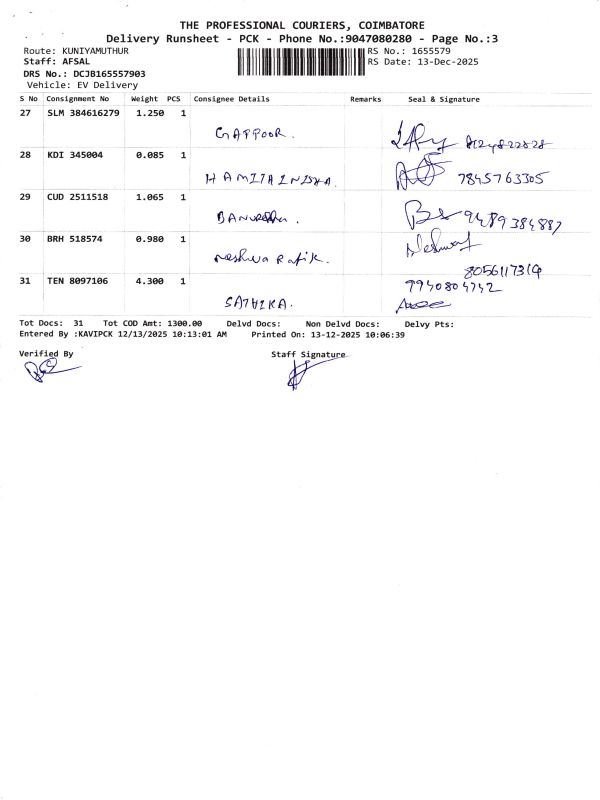 THE PROFESSIONAL COURIERS, COIMBATORE
Delivery Runsheet - PCK - Phone No.:9047080280 - Page No.:3
Route: KUNIYAMUTHUR RS No.: 1655579
Staff: AFSAL RS Date: 13-Dec-2025
DRS No.: DCJB165557903
Vehicle: EV Delivery
S No Consignment No Weight PCS Consignee Details Remarks Seal & Signature
27 SLM 384616279 1.250 1
GAFFOOR.
28 KDI 345004 0.085 1
HAMITHINISHA. 7845763305
29 CUD 2511518 1.065 1
9489384887
30 BRH 518574 0.980 1
Neshwa Rafik. Neshwa
8056117319
31 TEN 8097106 4.300 1 7940804742
SATHIKA.
Tot Docs: 31 Tot COD Amt: 1300.00 Delvd Docs: Non Delvd Docs: Delvy Pts:
Entered By :KAVIPCK 12/13/2025 10:13:01 AM Printed On: 13-12-2025 10:06:39
Verified By Staff Signature